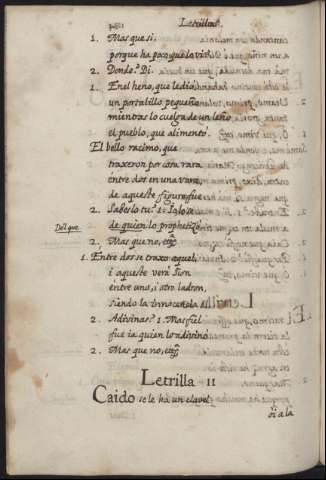 Letrillas.
1. Mas que si,
porque ha poco que lo vi.
2. Donde? Di.
1. En el heno, que le dio
un portalillo pequeño,
mientras lo cuelga de un leño
el pueblo, que alimentò.
El bello racimo, que
traxeron por cosa rara
entre dos en una vara,
de aqueste figura fue
2. Sabeslo tu? 1. Io lo se
Del que
de quien lo prophetizò
2. Mas que no, etc.
1. Entre dos se traxo aquel,
i aqueste verà Sion
entre uno, i otro ladron,
siendo la innocencia el
2. Adivinas? 1. Mas fiel
fue ia quien lo adivinò
2. Mas que no, etc.
Letrilla II
Caido se le ha un clavel
oi a la